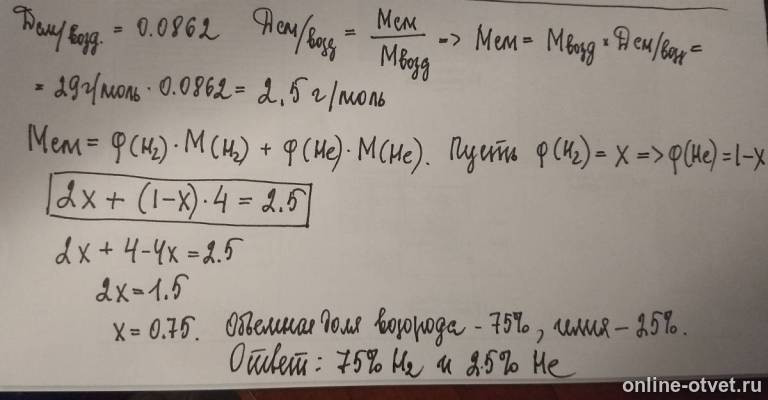 Dсм/возд. = 0.0862 Dсм/возд = Mсм/Mвозд => Mсм = Mвозд · Dсм/возд =
= 29 г/моль · 0.0862 = 2,5 г/моль
Mсм = φ(H₂) · M(H₂) + φ(He) · M(He). Пусть φ(H₂) = X => φ(He) = 1-X
2x + (1-x) · 4 = 2.5
2x + 4-4x = 2.5
2x = 1.5
x = 0.75. Объемная доля водорода - 75%, гелия - 25%.
Ответ: 75% H₂ и 25% He
online-otvet.ru